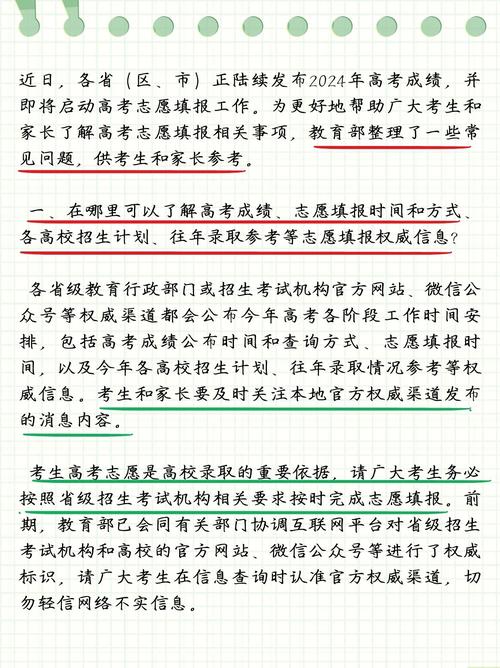 近日，各省（区、市）正陆续发布2024年高考成绩，并
即将启动高考志愿填报工作。为更好地帮助广大考生和
家长了解高考志愿填报相关事项，教育部整理了一些常
见问题，供考生和家长参考。
一、在哪里可以了解高考成绩、志愿填报时间和方式、
各高校招生计划、往年录取参考等志愿填报权威信息？
各省级教育行政部门或招生考试机构官方网站、微信公
众号等权威渠道都会公布今年高考各阶段工作时间安
排，包括高考成绩公布时间和查询方式、志愿填报时
间，以及今年各高校招生计划、往年录取情况参考等权
威信息。考生和家长要及时关注本地官方权威渠道发布
的消息内容。
考生高考志愿是高校录取的重要依据，请广大考生务必
按照省级招生考试机构相关要求按时完成志愿填报。前
期，教育部已会同有关部门协调互联网平台对省级招生
考试机构和高校的官方网站、微信公众号等进行了权威
标识，请广大考生在信息查询时认准官方权威渠道，切
勿轻信网络不实信息。